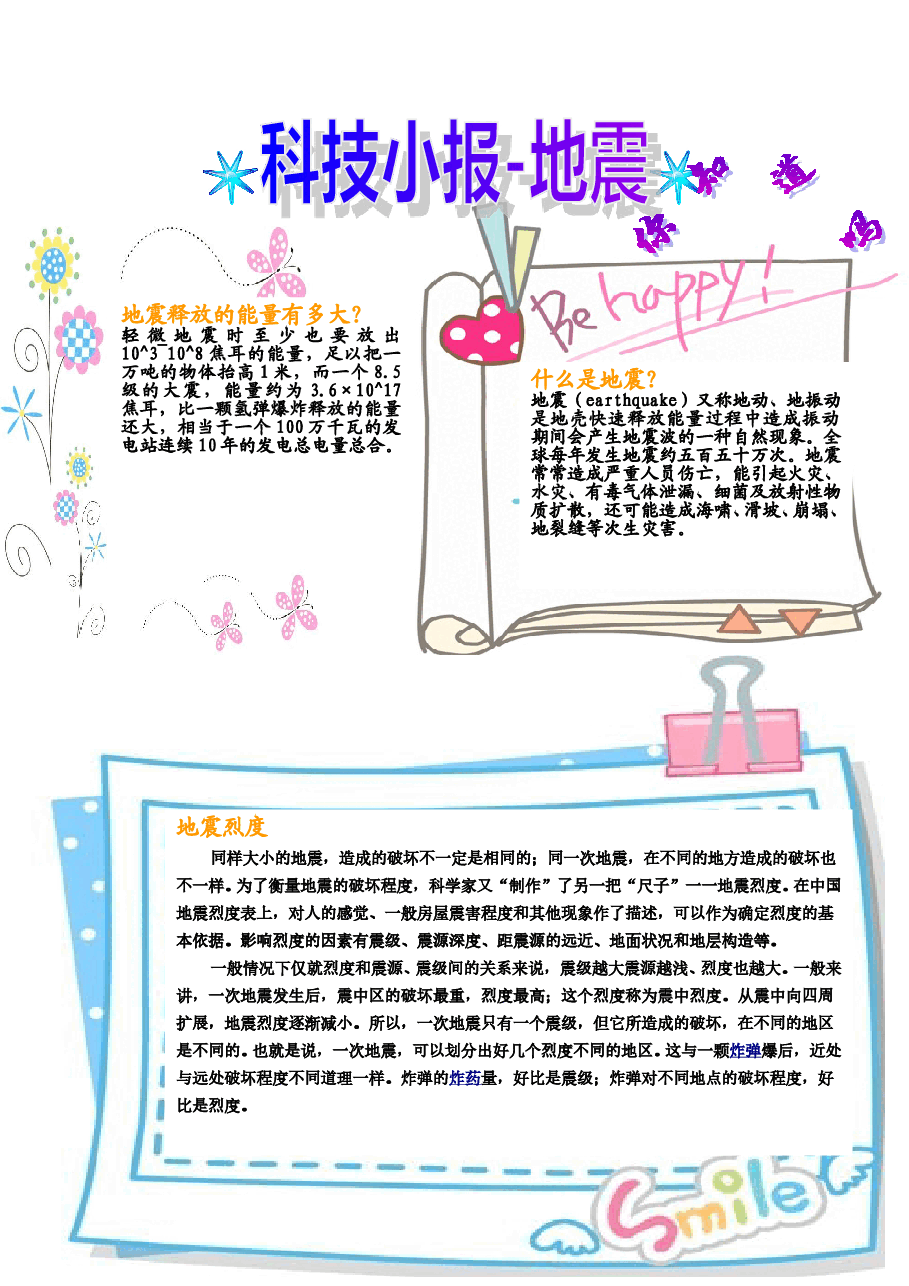 科技小报-地震
你知道吗
Be happy!
地震释放的能量有多大?
轻微地震时至少也要放出
10^3~10^8焦耳的能量，足以把一
万吨的物体抬高1米，而一个8.5
级的大震，能量约为3.6×10^17
焦耳，比一颗氢弹爆炸释放的能量
还大，相当于一个100万千瓦的发
电站连续10年的发电总电量总合。
什么是地震?
地震（earthquake）又称地动、地振动
是地壳快速释放能量过程中造成振动
期间会产生地震波的一种自然现象。全
球每年发生地震约五百五十万次。地震
常常造成严重人员伤亡，能引起火灾、
水灾、有毒气体泄漏、细菌及放射性物
质扩散，还可能造成海啸、滑坡、崩塌、
地裂缝等次生灾害。
地震烈度
同样大小的地震，造成的破坏不一定是相同的；同一次地震，在不同的地方造成的破坏也
不一样。为了衡量地震的破坏程度，科学家又“制作”了另一把“尺子”一一地震烈度。在中国
地震烈度表上，对人的感觉、一般房屋震害程度和其他现象作了描述，可以作为确定烈度的基
本依据。影响烈度的因素有震级、震源深度、距震源的远近、地面状况和地层构造等。
一般情况下仅就烈度和震源、震级间的关系来说，震级越大震源越浅、烈度也越大。一般来
讲，一次地震发生后，震中区的破坏最重，烈度最高；这个烈度称为震中烈度。从震中向四周
扩展，地震烈度逐渐减小。所以，一次地震只有一个震级，但它所造成的破坏，在不同的地区
是不同的。也就是说，一次地震，可以划分出好几个烈度不同的地区。这与一颗炸弹爆后，近处
与远处破坏程度不同道理一样。炸弹的炸药量，好比是震级；炸弹对不同地点的破坏程度，好
比是烈度。
Smile